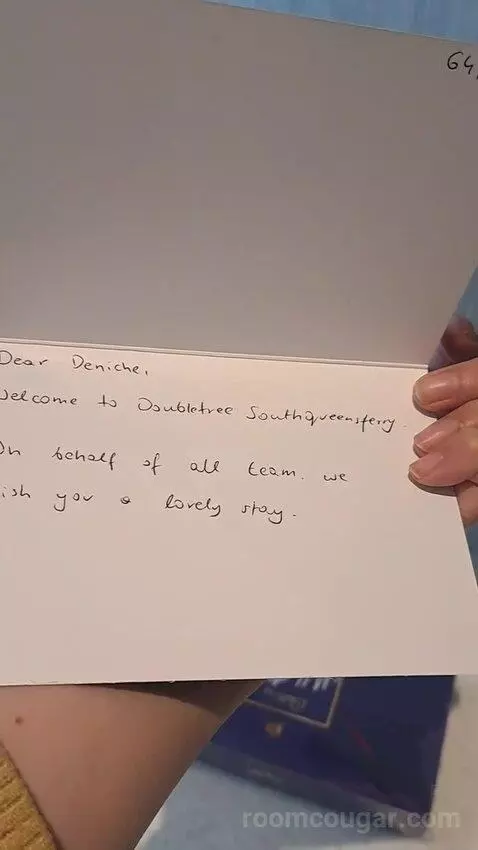 64
Dear Deniche,
Welcome to Doubletree Southqueensferry.
On behalf of all team. we
wish you a lovely stay.
roomcougar.com